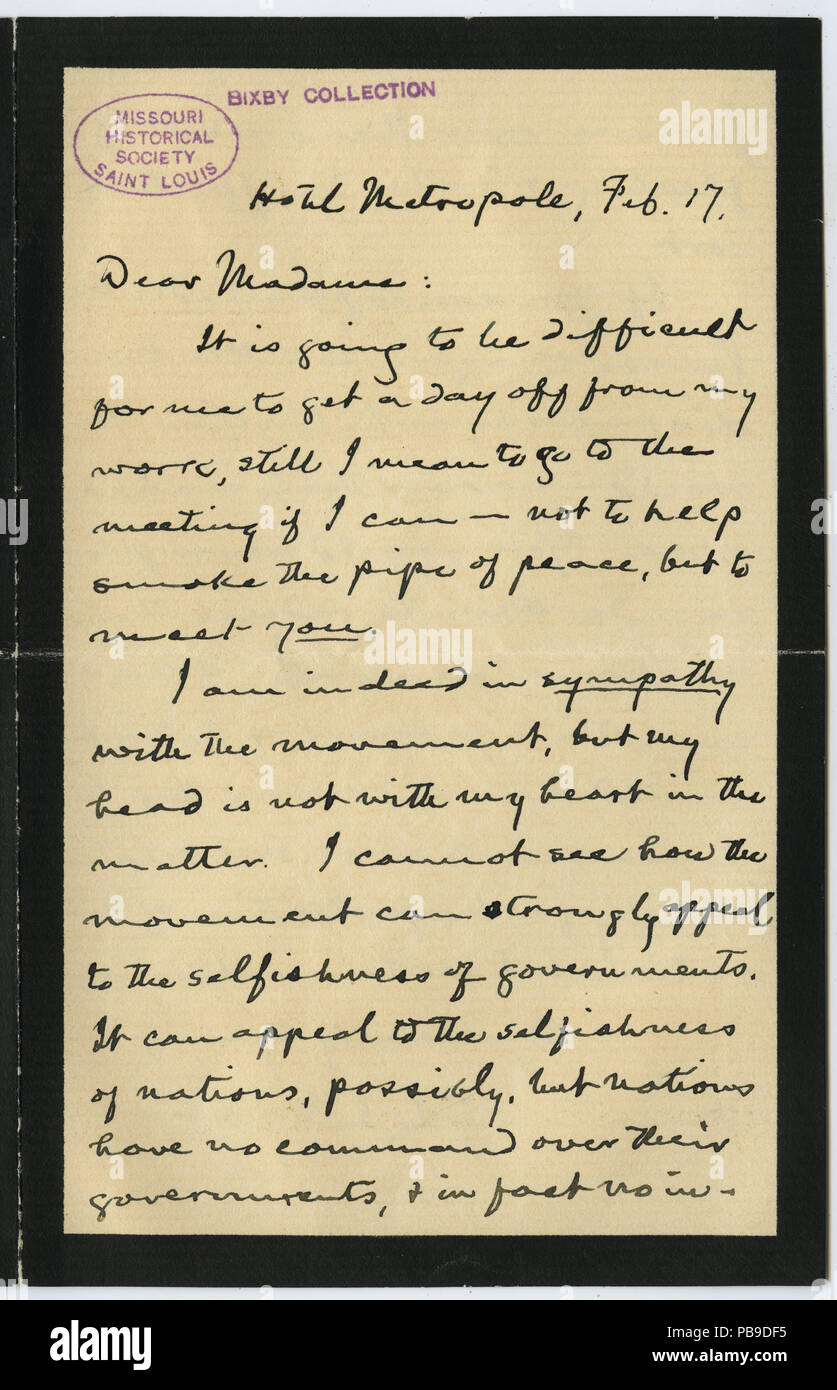 BIXBY COLLECTION
MISSOURI
HISTORICAL
SOCIETY
SAINT LOUIS
Hotel Metropole, Feb. 17.
Dear Madame:
It is going to be difficult
for me to get a day off from my
work, still I mean to go to the
meeting if I can — not to help
smoke the pipe of peace, but to
meet you.
I am indeed in sympathy
with the movement, but my
head is not with my heart in the
matter. I cannot see how the
movement can strongly appeal
to the selfishness of governments.
It can appeal to the selfishness
of nations, possibly, but nations
have no command over their
governments, & in fact no in-
alamy
alamy
alamy
alamy
alamy
Image ID: PB9DF5
www.alamy.com